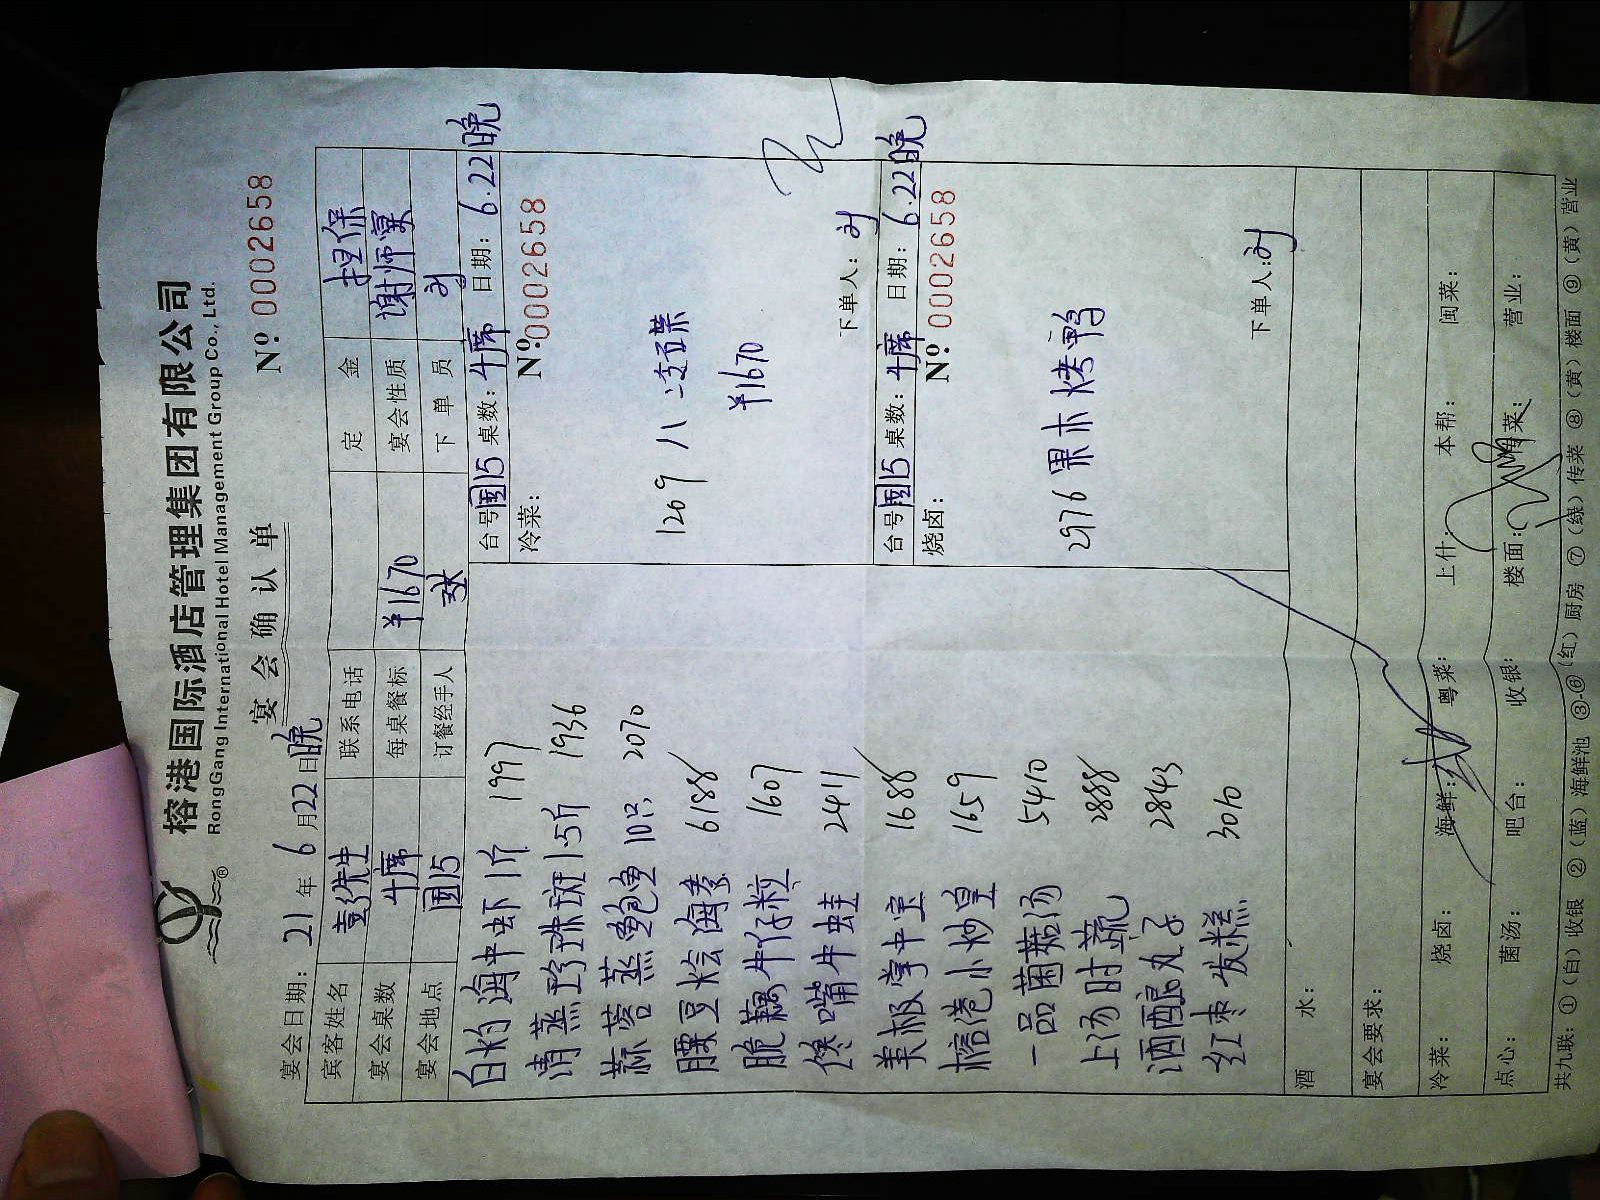 榕港国际酒店管理集团有限公司
RongGang International Hotel Management Group Co., Ltd.
宴会确认单
Nº 0002658
宴会日期: 21年 6月22日晚
宾客姓名 彭先生 联系电话 定金 担保
宴会桌数 4席 每桌餐标 ¥1670 宴会性质 谢师宴
宴会地点 国15 订餐经手人 下单员
白灼海中虾1斤 1997
清蒸珍珠斑1.5斤 1936
蒜蓉蒸鲍鱼10只 2070
腰豆烩海参 6188
脆藕牛仔粒 1607
馋嘴牛蛙 2411
美极掌中宝 1688
榕港小炒皇 1659
一品菌菇汤 5410
上汤时蔬 2888
酒酿丸子 2843
红枣发糕 3010
台号国15 桌数: 4席 日期: 6.22晚
冷菜: Nº:0002658
1269 八凉碟
¥1670
下单人:
台号国15 桌数: 4席 日期: 6.22晚
烧卤: Nº 0002658
2976 果木烤鸭
下单人:
酒水:
宴会要求:
冷菜: 烧卤: 海鲜: 粤菜: 上什: 本帮: 闽菜:
点心: 菌汤: 吧台: 收银: 楼面: 传菜: 营业:
共九联: ①(白)收银 ②(蓝)海鲜池 ③-⑥(红)厨房 ⑦(绿)传菜 ⑧(黄)楼面 ⑨(黄)营业